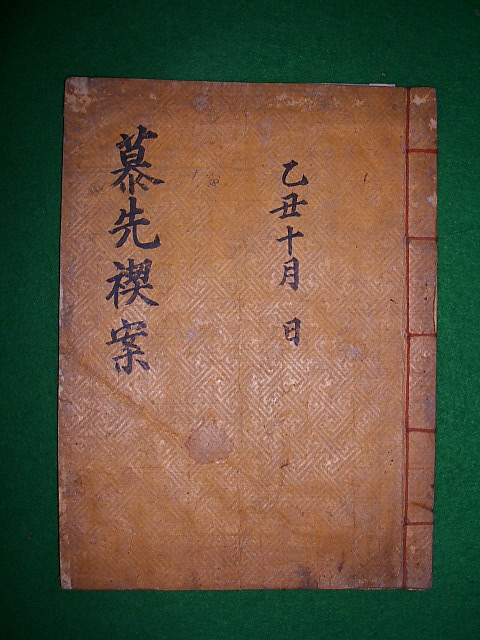 乙丑十月 日
慕先禊案